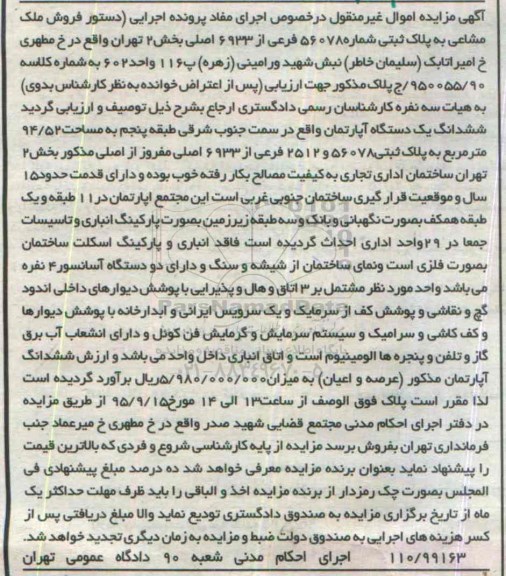 آگهی مزایده اموال غیرمنقول درخصوص اجرای مفاد پرونده اجرایی (دستور فروش ملک
مشاعی به پلاک ثبتی شماره۵۶۰۷۸ فرعی از ۶۹۳۳ اصلی بخش۲ تهران واقع در خ مطهری
خ امیراتابک (سلیمان خاطر) نبش شهید ورامینی (زهره) پ۱۱۶ واحد۶۰۲ به شماره کلاسه
۹۵۰۰۵۵/۹۰/ج پلاک مذکور جهت ارزیابی (پس از اعتراض خوانده به نظر کارشناس بدوی)
به هیات سه نفره کارشناسان رسمی دادگستری ارجاع بشرح ذیل توصیف و ارزیابی گردید
ششدانگ یک دستگاه آپارتمان واقع در سمت جنوب شرقی طبقه پنجم به مساحت۹۴/۵۲
مترمربع به پلاک ثبتی۵۶۰۷۸ و ۲۵۱۲ فرعی از ۶۹۳۳ اصلی مفروز از اصلی مذکور بخش۲
تهران ساختمان اداری تجاری به کیفیت مصالح بکار رفته خوب بوده و دارای قدمت حدود۱۵
سال و موقعیت قرار گیری ساختمان جنوبی غربی است این مجتمع اپارتمان در۱۱ طبقه و یک
طبقه همکف بصورت نگهبانی و بانک و سه طبقه زیرزمین بصورت پارکینگ انباری و تاسیسات
جمعا در ۲۹واحد اداری احداث گردیده است فاقد انباری و پارکینگ اسکلت ساختمان
بصورت فلزی است ونمای ساختمان از شیشه و سنگ و دارای دو دستگاه آسانسور۴ نفره
می باشد واحد مورد نظر مشتمل بر ۳ اتاق و هال و پذیرایی با پوشش دیوارهای داخلی اندود
گچ و نقاشی و پوشش کف از سرمایک و یک سرویس ایرانی و آبدارخانه با پوشش دیوارها
و کف کاشی و سرامیک و سیستم سرمایش و گرمایش فن کوئل و دارای انشعاب آب برق
گاز و تلفن و پنجره ها الومینیوم است و اتاق انباری داخل واحد می باشد و ارزش ششدانگ
آپارتمان مذکور (عرصه و اعیان) به میزان۵/۹۸۰/۰۰۰/۰۰۰ریال برآورد گردیده است
لذا مقرر است پلاک فوق الوصف از ساعت۱۳ الی ۱۴ مورخ۹۵/۹/۱۵ از طریق مزایده
در دفتر اجرای احکام مدنی مجتمع قضایی شهید صدر واقع در خ مطهری خ میرعماد جنب
فرمانداری تهران بفروش برسد مزایده از پایه کارشناسی شروع و فردی که بالاترین قیمت
را پیشنهاد نماید بعنوان برنده مزایده معرفی خواهد شد ده درصد مبلغ پیشنهادی فی
المجلس بصورت چک رمزدار از برنده مزایده اخذ و الباقی را باید ظرف مهلت حداکثر یک
ماه از تاریخ برگزاری مزایده به صندوق دادگستری تودیع نماید والا مبلغ دریافتی پس از
کسر هزینه های اجرایی به صندوق دولت ضبط و مزایده به زمان دیگری تجدید خواهد شد.
۱۱۰/۹۹۱۶۳ اجرای احکام مدنی شعبه ۹۰ دادگاه عمومی تهران